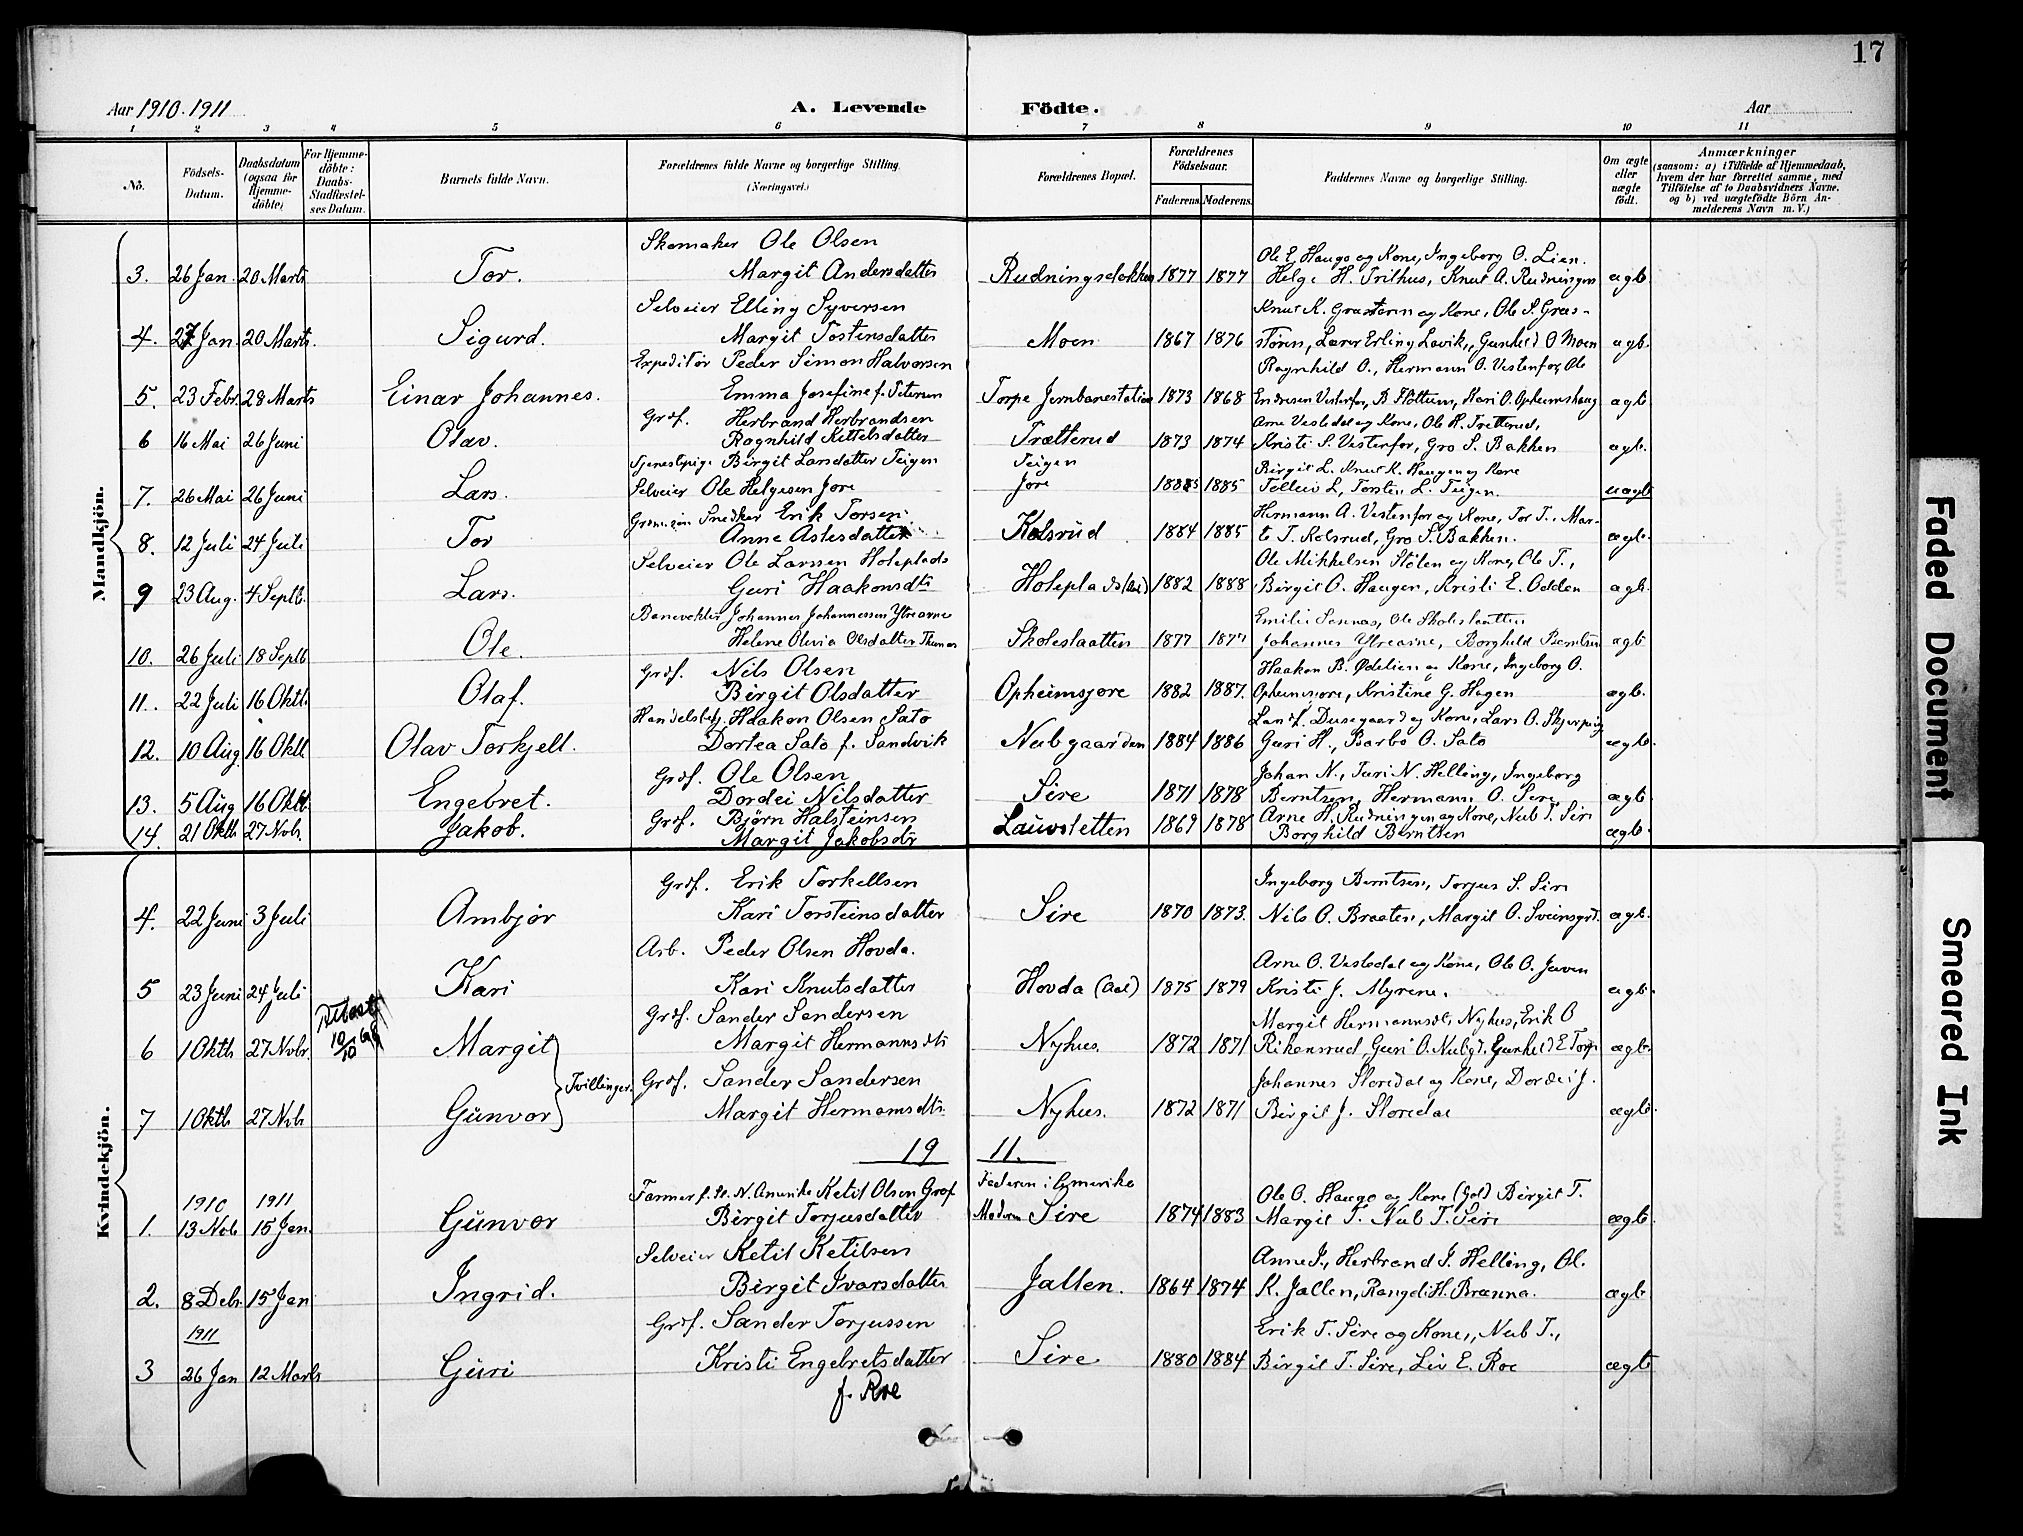 17
Aar 1910-1911 A. Levende Födte. Aar
1 2 3 4 5 6 7 8 9 10 11
No. Födsels-Datum. Daabsdatum (ogsaa for Hjemme-döbte) For Hjemme-döbte: Daabs-Stadfæstel-ses Datum. Barnets fulde Navn. Forældrenes fulde Navne og borgerlige Stilling. (Næringsvei.) Forældrenes Bopæl. Forældrenes Födselsaar. Faderens Moderens. Faddernes Navne og borgerlige Stilling. Om ægte eller uægte födt. Anmærkninger (saasom: a) i Tilfælde af Hjemmedaab, hvem der har forrettet samme, med Tilföielse af to Daabsvidners Navne, og b) ved uægtefödte Börn An-melderens Navn m. V.)
Mandkjön.
Skomaker Ole Olsen Ole E. Haugo og Kone, Ingeborg O. Lien.
3. 26 Jan. 20 Marts Tor. Margit Andersdatter Rudningsdokken 1877 1877 Helge H. Trilhus, Knut A. Rudningen ægte.
Selveier Elling Syversen Knut K. Grøstøren og Kone, Ole S. Grøs-
4. 27 Jan 20 Marts. Sigurd. Margit Tostensdatter Moen 1867 1876 tøren, Lærer Erling Lavik, Gunhild O Moen ægte.
Expeditør Peder Simon Halvorsen Ragnhild O., Hermann O. Vestenfor, Ole
5. 23 Febr. 28 Marts Einar Johannes. Emma Josefine f. Petersen Torpo Jernbanestation 1873 1868 Endresen Vestenfor, B Fløttum, Kari O. Opheimshaug ægte
Grdf. Herbrand Herbrandsen Arne Vestedal og Kone, Ole H. Trøtterud,
6 16 Mai 26 Juni Olav. Ragnhild Kittelsdatter Trætterud 1873 1874 Kristi S. Vestenfor, Gro S. Bakken ægte.
Tjenestepige Birgit Larsdatter Teigen Teigen Birgit L. Knut K. Haugen og Kone
7. 26 Mai 26 Juni Lars. Selveier Ole Helgesen Jore Jore 1885 1885 Tollev L, Torsten L. Teigen. uægte
Snedker Erik Torsen Hermann A. Vestenfor og Kone, Tor T., Mar-
8. 12 Juli 24 Juli Tor Anne Aslesdatter Kolsrud 1884 1885 to T. Kolsrud, Gro S. Bakken. ægte.
Selveier Ole Larssen Holeplads Ole Mikkelsen Stølen og Kone, Ole T.,
9 23 Aug. 4 Septb. Lars. Guri Haakonsdtr Holeplads (Aal) 1882 1888 Birgit O. Haugen, Kristi E. Odden ægte.
Banevokter Johannes Johannessen Ytrearne Emilie Sannas, Ole Skoleslaatten
10. 26 Juli 18 Septb Ole. Helene Olivia Olsdatter Skoleslaatten 1877 1877 Johannes Ytrearne, Borghild Berntsen ægte
Grdf. Nils Olsen Haakon B. Ødelien og Kone, Ingeborg O.
11. 22 Juli 16 Oktb. Olaf. Birgit Olsdatter Opheimsjore 1882 1887. Opheimsjore, Kristine G. Hagen ægte.
Handelsbetj. Haakon Olsen Sato Landh. Dusegaard og Kone, Lars O. Skjerping
12. 10 Aug 16 Oktb Olav Torkjell. Dortea Sato f. Sandvik Nubgaarden 1884 1886 Guri H., Barbo O. Sato ægte.
Grdf. Ole Olsen Johan N., Turi N. Helling, Ingeborg
13. 5 Aug 16 Oktb. Engebret. Dordei Nilsdatter Sire 1871 1878 Berntsen, Hermann O. Sire ægte
Grdf. Bjørn Halsteinsen Arne H. Rudningen og Kone, Nub T. Sire
14. 21 Oktb 27 Nvb. Jakob. Margit Jakobsdtr Lauvstetten 1869 1878 Borghild Berntsen ægte.
Kvindekjön.
Grdf. Erik Torkellsen Ingeborg Berntsen, Torjus S. Sire
4. 22 Juni 3 Juli Ambjør Kari Torsteinsdatter Sire 1870 1873. Nils O. Braaten, Margit O. Sveinsgrd. ægte.
Arb. Peder Olsen Hovda. Arne O. Vestedal og Kone, Ole O. Juven
5 23 Juni 24 Juli Kari Kari Knutsdatter Hovda (Aal) 1875 1879 Kristi J. Myrene. ægte.
Grdf. Sander Sandersen Margit Hermannsdt. Nyhus, Erik O
6 1 Oktb 27 Nvbr. 10/10 Margit Margit Hermannsdtr Nyhus. 1872 1871 Rikensrud, Guri O. Nubgd. Gunhild E Torp ægte.
Tvillinger. Grdf. Sander Sandersen Johannes Storedal og Kone, Dordei J.
7 1 Oktb 27 Nvb Gunvor Margit Hermansdtr Nyhus. 1872 1871 Birgit J. Storedal ægte.
19 11.
1910 1911 Farmer f. St. N. Amerika Ketil Olsen Grøf Faderen i Amerika Ole O. Haugo og Kone (Gol) Birgit T.
1. 13 Nvb 15 Jan. Gunvor Birgit Torjusdatter Moderen Sire 1874 1883 Margit T. Nub T. Sire ægte.
Selveier Ketil Ketilsen Anne I., Herbrand I. Helling, Ol.
2. 8 Debr. 15 Jan Ingrid. Birgit Ivarsdatter Jallen. 1864 1874 K. Jallen, Rangdi H. Brænna. ægte
1911 Grdf. Sander Torjussen Erik T. Sire og Kone, Nub T.,
3 26 Jan 12 Marts Guri Kristi Engebretsdatter Sire 1880 1884 Birgit T. Sire, Liv E. Roe ægte
f. Roe
Faded Document
Smeared Ink